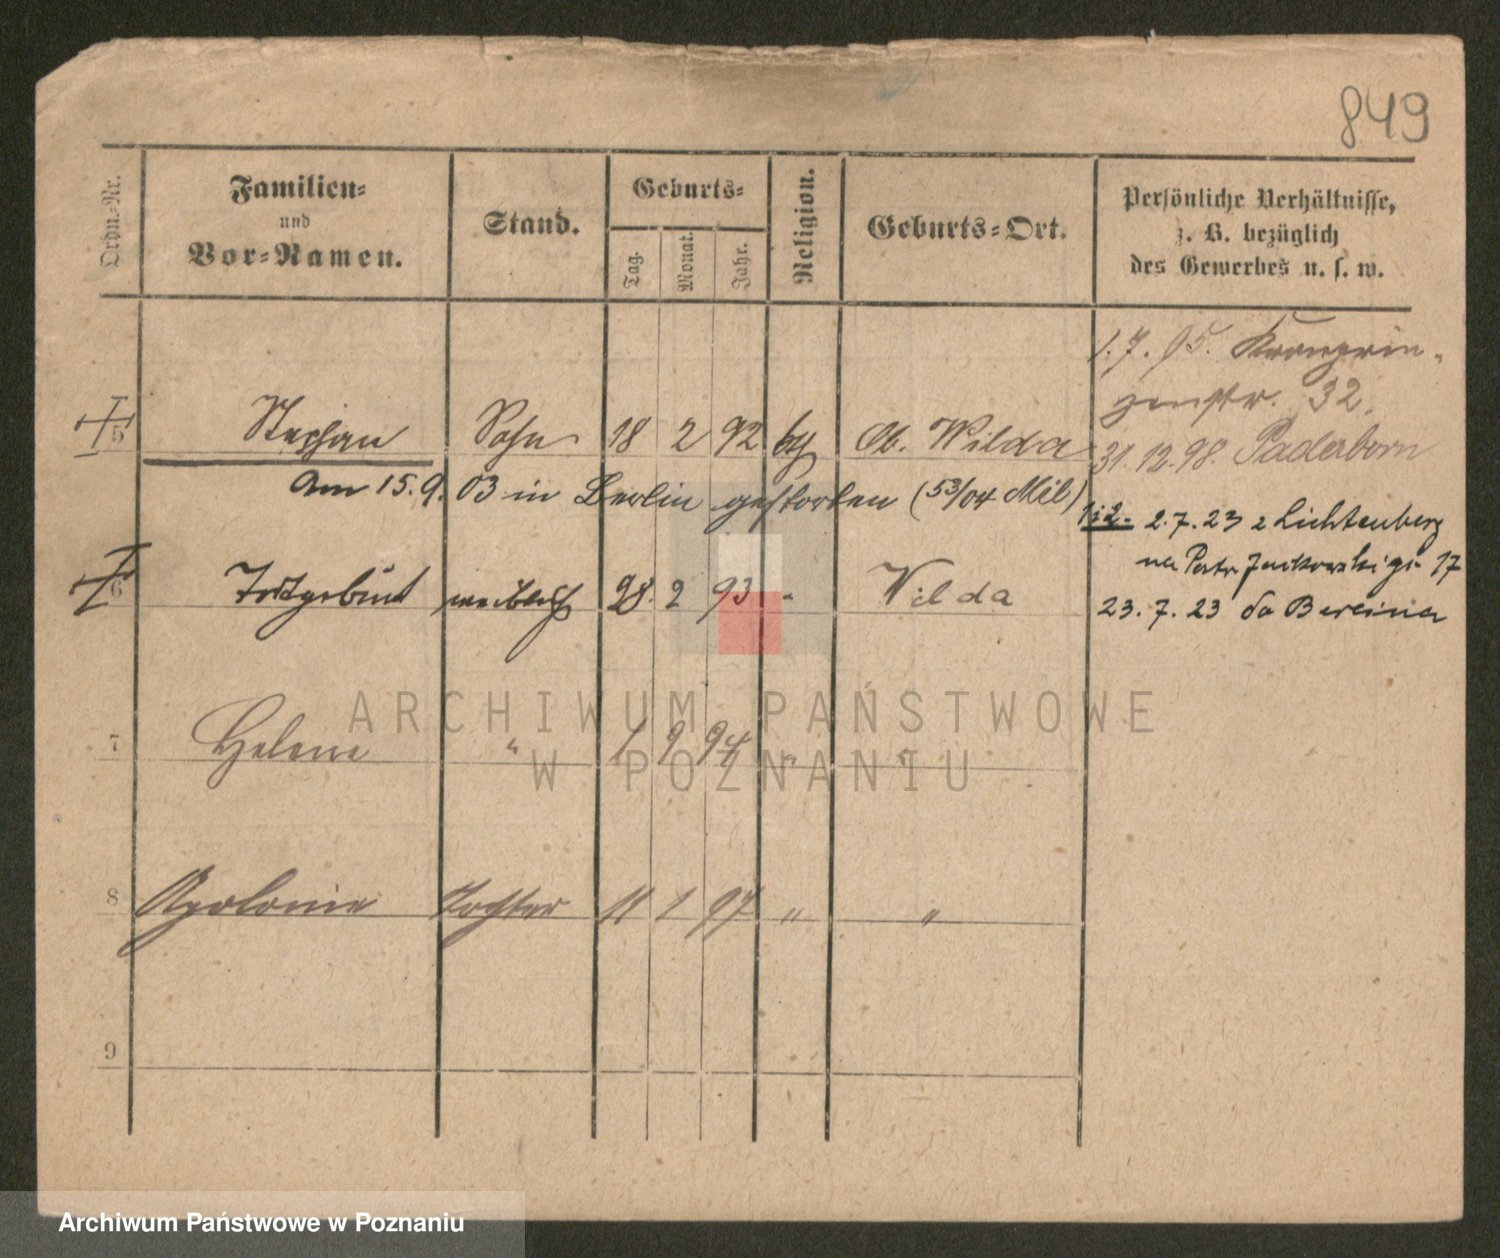 849
Ordn.-Nr.
Familien-
und
Vor-Namen.
Stand.
Geburts-
Tag.
Monat.
Jahr.
Religion.
Geburts-Ort.
Persönliche Verhältnisse,
z. B. bezüglich
des Gewerbes u. s. w.
1. 7. 95. Kronprin-
zenstr. 32.
5 Stephan Sohn 18 2 92 Ob. Wilda
31. 12. 98. Paderborn
Am 15. 9. 03 in Berlin gestorben (53/04 Mil)
1i2. 2. 7. 23 z Lichtenberg
na Patr Jackowskigo 17
6 Totgeburt weiblich 28. 2 93 Wilda
23. 7. 23 do Berlina
7 Helene " 1 9 94 " "
8 Apolonie Tochter 11 1 97 " "
9
ARCHIWUM PAŃSTWOWE
W POZNANIU
Archiwum Państwowe w Poznaniu